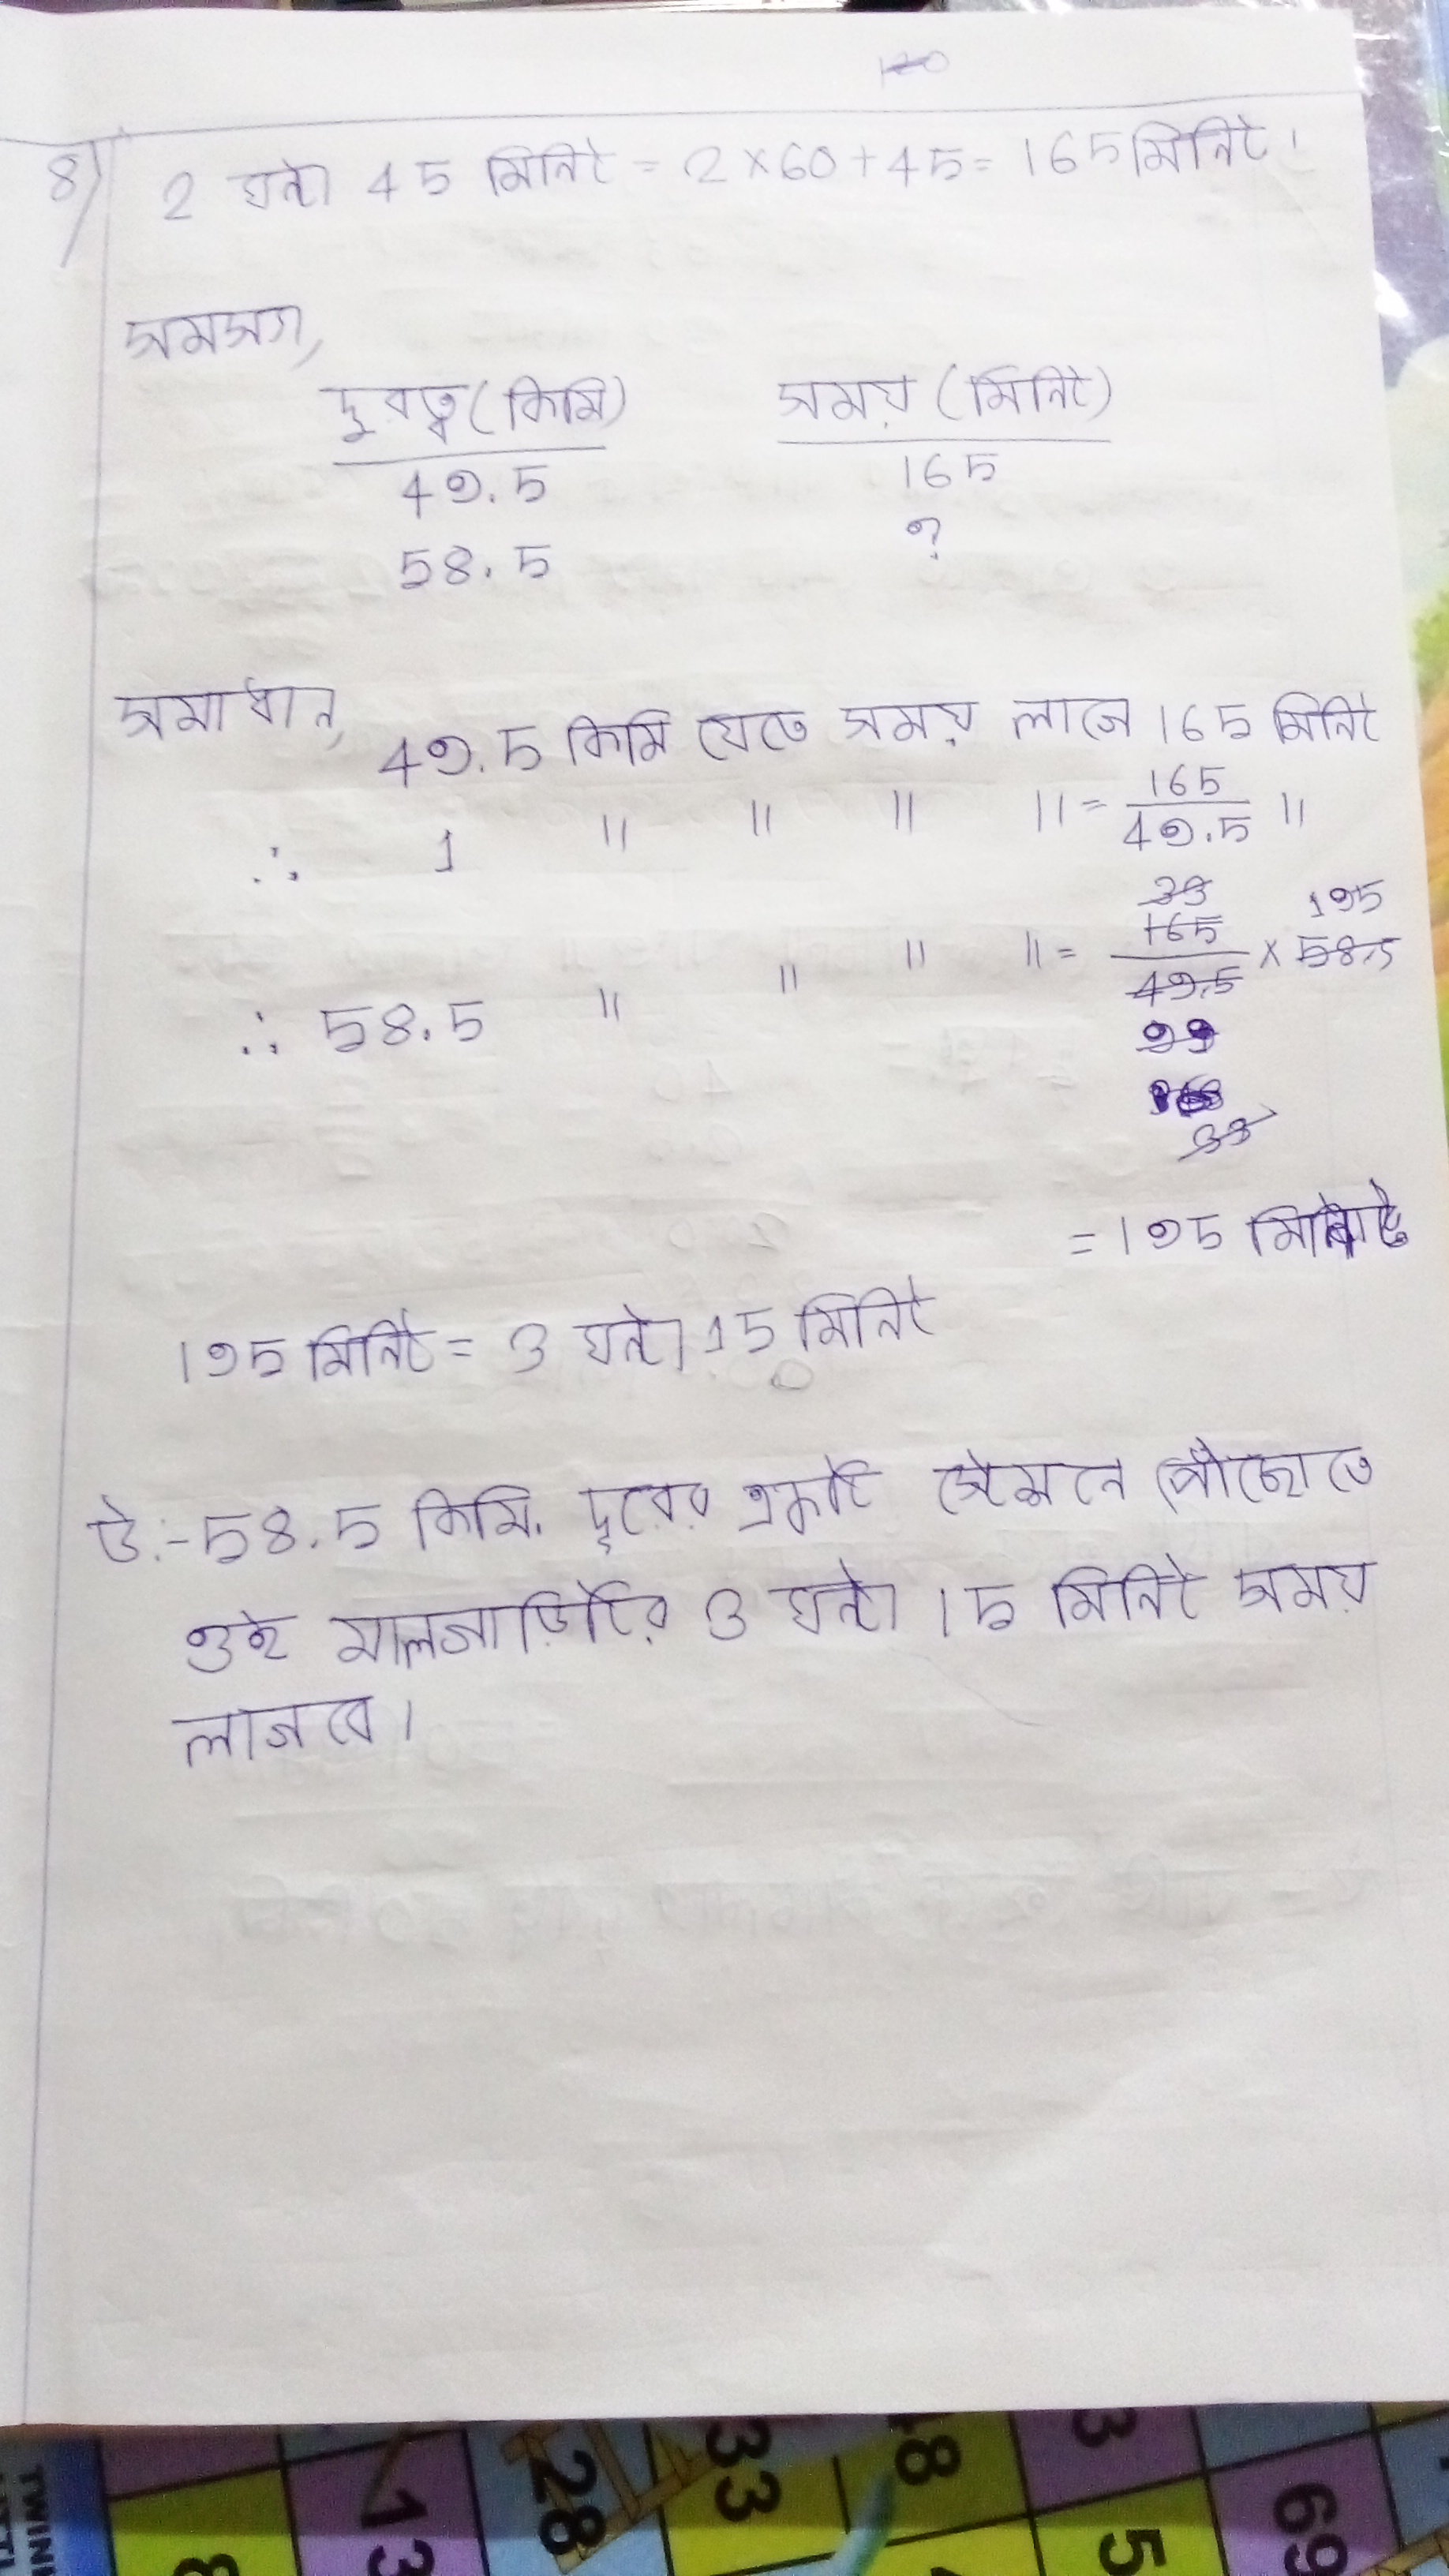 120
8) 2 ঘন্টা 45 মিনিট = 2 × 60 + 45 = 165 মিনিট।
সমস্যা,
দুরত্ব (কিমি) সময় (মিনিট)
49.5 165
58.5 ?
সমাধান, 49.5 কিমি যেতে সময় লাগে 165 মিনিট
∴ 1 " " " " = 165/49.5 "
33 195
∴ 58.5 " " " " = 165/49.5 × 58.5
99
33
= 195 মিনিট
195 মিনিট = 3 ঘন্টা 15 মিনিট
উ:- 58.5 কিমি. দূরের একটি স্টেশনে পৌঁছোতে
ওই মালগাড়িটির 3 ঘন্টা 15 মিনিট সময়
লাগবে।
TWIN
8 13 28 33 48 5 3 69